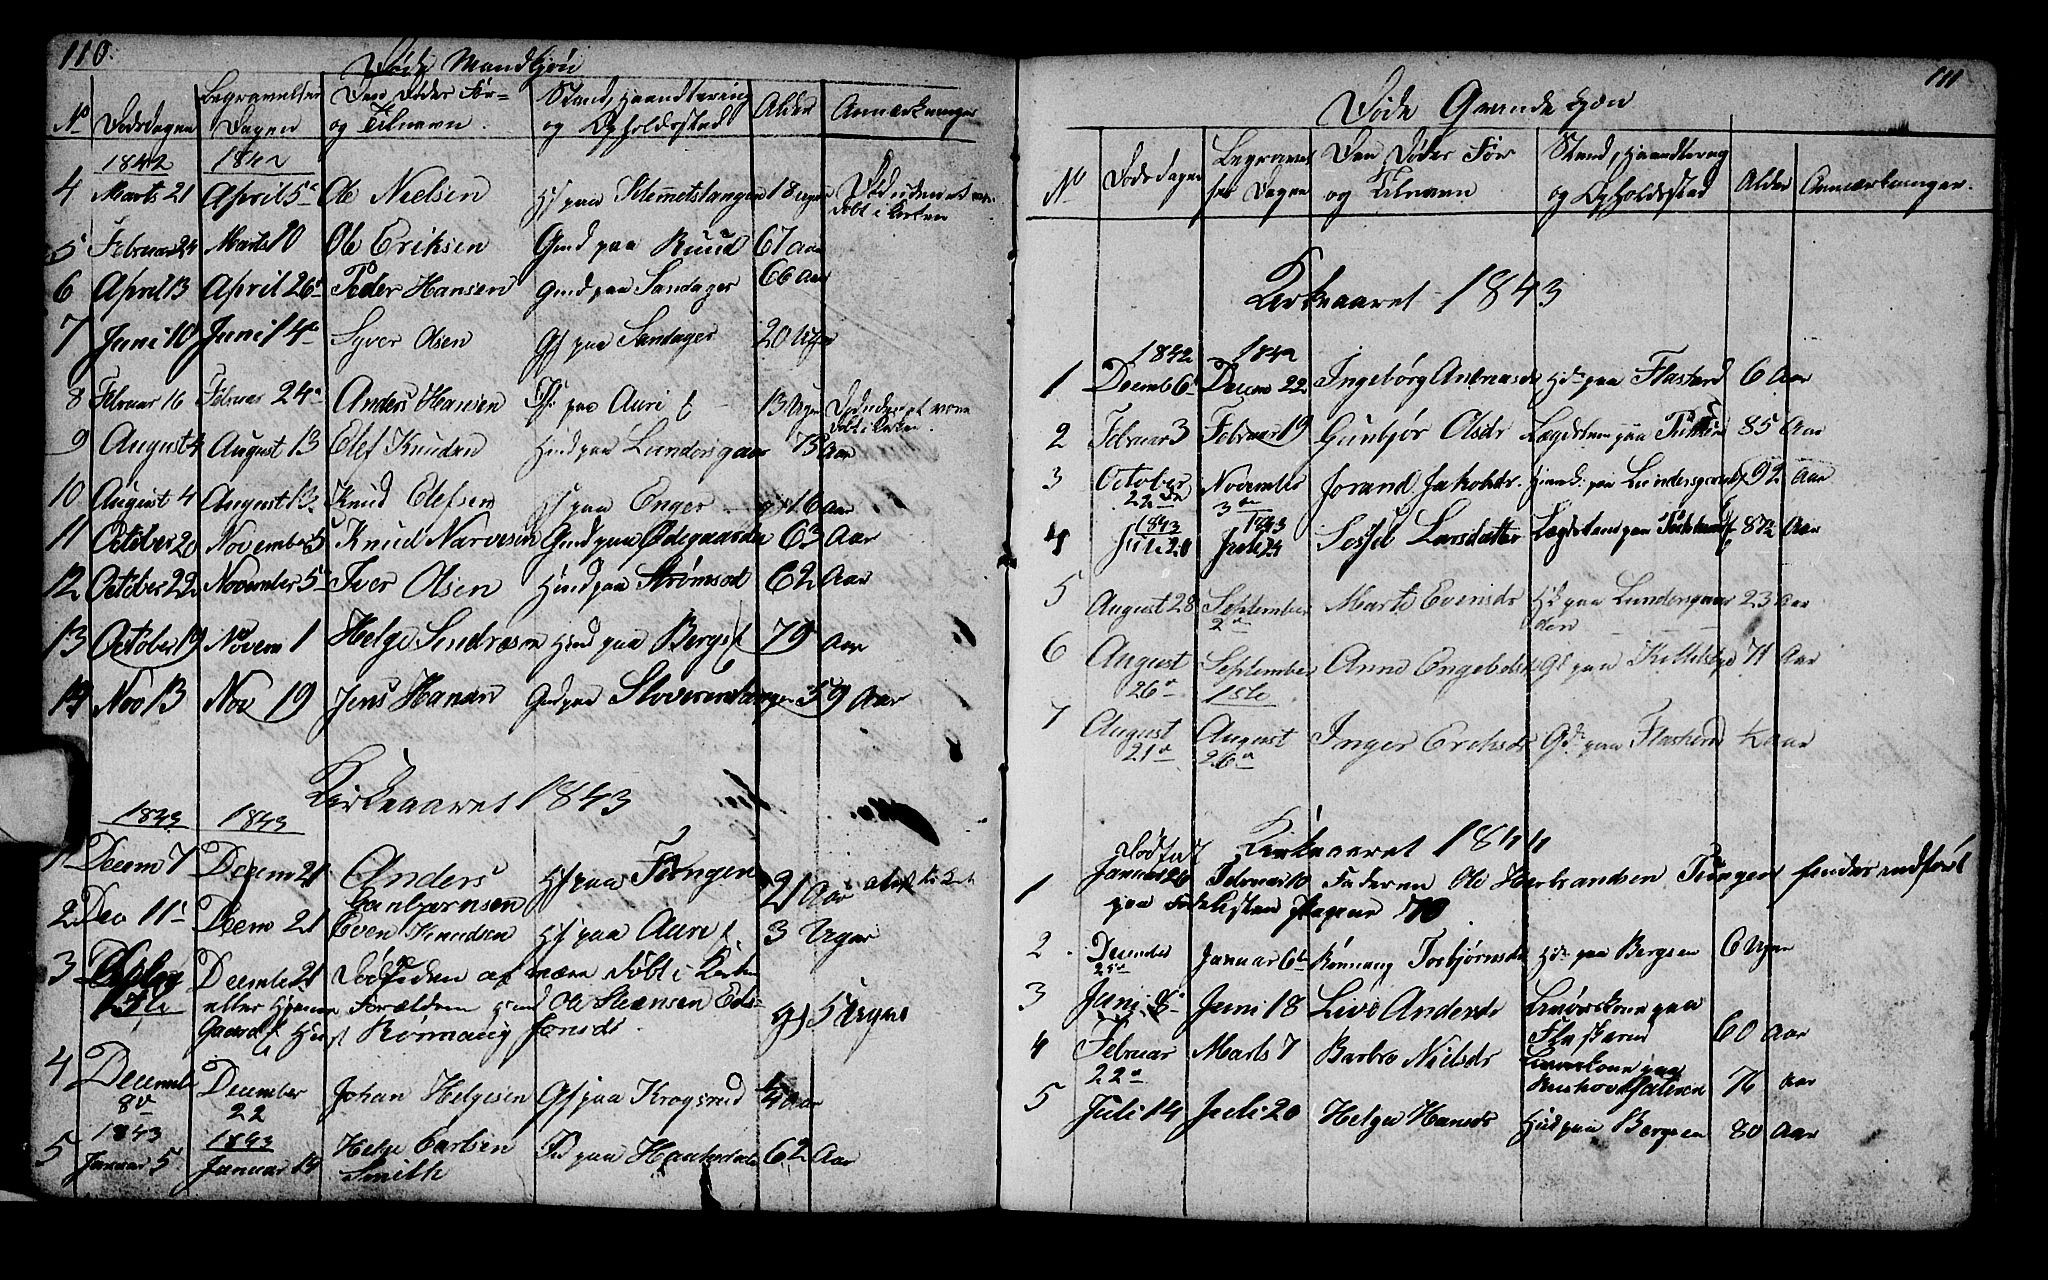 110.
Døde Mandkjøn
No Dødsdagen Begravelses Dagen Den Dødes For- og Tilnavn. Stand, Haandtering og Opholdssted Alder Anmærkninger
1842 1842
4 Marts 21 April 5te Ole Nielsen Gs paa Klemmetslangen 18 Uger Død uden at være Døbt i Kirken
5 Februar 24 Marts 10 Ole Eriksen Gmd paa Ruud 67 Aar
6 April 13 April 26 Peder Hansen Gmd paa Sandager 66 Aar
7 Juni 10 Juni 14de Syver Olsen Gs paa Sandager 20 Uger
8 Februar 16 Februar 24de Anders Hansen paa Auri 13 Uger Død uden at være Døbt i Kirken
9 August 4 August 13 Elef Knudsen Hmd paa Lundersgaar 73 Aar
10 August 4 August 13 Knud Elefsen paa Enger 16 Aar
11 October 20 November 5 Knud Narvesen Gmd paa Ødegaarden 63 Aar
12 October 22 November 5 Iver Olsen Hmd paa Strømsod 62 Aar
13 October 19 Novem 1 Helge Sindresen Hmd paa Bergs 79 Aar
14 Nov 13 Nov 19 Jens Hansen Gmd paa Sloverenlangen 59 Aar
Kirkeaaret 1843
1843 1843
1 Decem 7 Decem 21 Anders Gunbjørnsen Hs paa Tongen 21 Aar
2 Dec 11 Decem 21 Even Knudsen Hs paa Auri 3 Uger
3 Decembe 21 Død uden at være Døbt i Kirken
eller Hjemme Forældren Hmd Ole Steensen Eds-
Gaard Hust Rønnaug Jonsdt. 5 Uger
4 December 8de December 22 Johan Helgesen Gs paa Krogsrud 4 Aar
1843 1843
5 Januar 5 Januar 14 Helge Carlsen Smith paa 62 Aar
111
Døde Qvindekjøn
No Dødsdagen Begravelses Dagen Den Dødes For og Tilnavn Stand, Haandtering og Opholdssted Alder Anmærkninger.
Kirkeaaret 1843
1842 1842
1 Decemb 6 Decem 22 Ingebørg Andreasdr Hd paa Flaskerud 6 Aar
2 Februar 3 Februar 19 Gunbjør Olsdr Lægdslem paa 85 Aar
3 October 22de November 3die Jorand Jakobdr. paa Lundersgaard 92 Aar
1843 1843
4 Juli 20 Juli 24 Sissel Larsdatter Lægdslem paa 87½ Aar
5 August 28 September 2den Marte Evensdr Hd paa Lundersgaarden 23 Aar
6 August 26de September 1ste Anne Engebdsdr Gd paa Kittelsbye 71 Aar
7 August 21de August 26de Inger Eriksdr Gd paa Flaskerud ½ Aar
Kirkeaaret 1844
1 Dødfødt Januar 26 Februar 10 Faderen Ole Herbrandsen Tongen findes indført
paa Fødelisten Pagina 70
2 December 25de Januar 6te Rønnaug Torbjørnsdr Hd paa Bergsen 6 Uger
3 Juni 8 Juni 18 Live Andersdr Inderstkone paa Flaskerud 60 Aar
4 Februar 22de Marts 7 Barbro Nielsdr paa 76 Aar
5 Juli 14 Juli 20 Helga Hansdr paa Bergsen 80 Aar